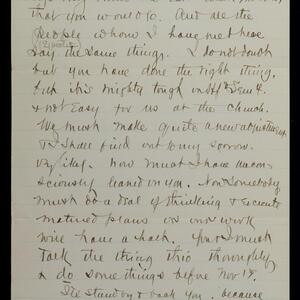 that you would do. And all the
people whom I have met have
say the same things. I do not doubt
but you have done the right thing.
but it's mighty tough
& not Easy for us at the Church.
We must make quite a new adjustment
& I shall find out to my sorrow
how much I have uncon-
sciously leaned on you. Now Somebody
must do a deal of thinking &
matured plans or our work
will have a halt. You & I must
talk the thing thro thoroughly
& do some things before Nov 18.
I'll stand by & back you, because